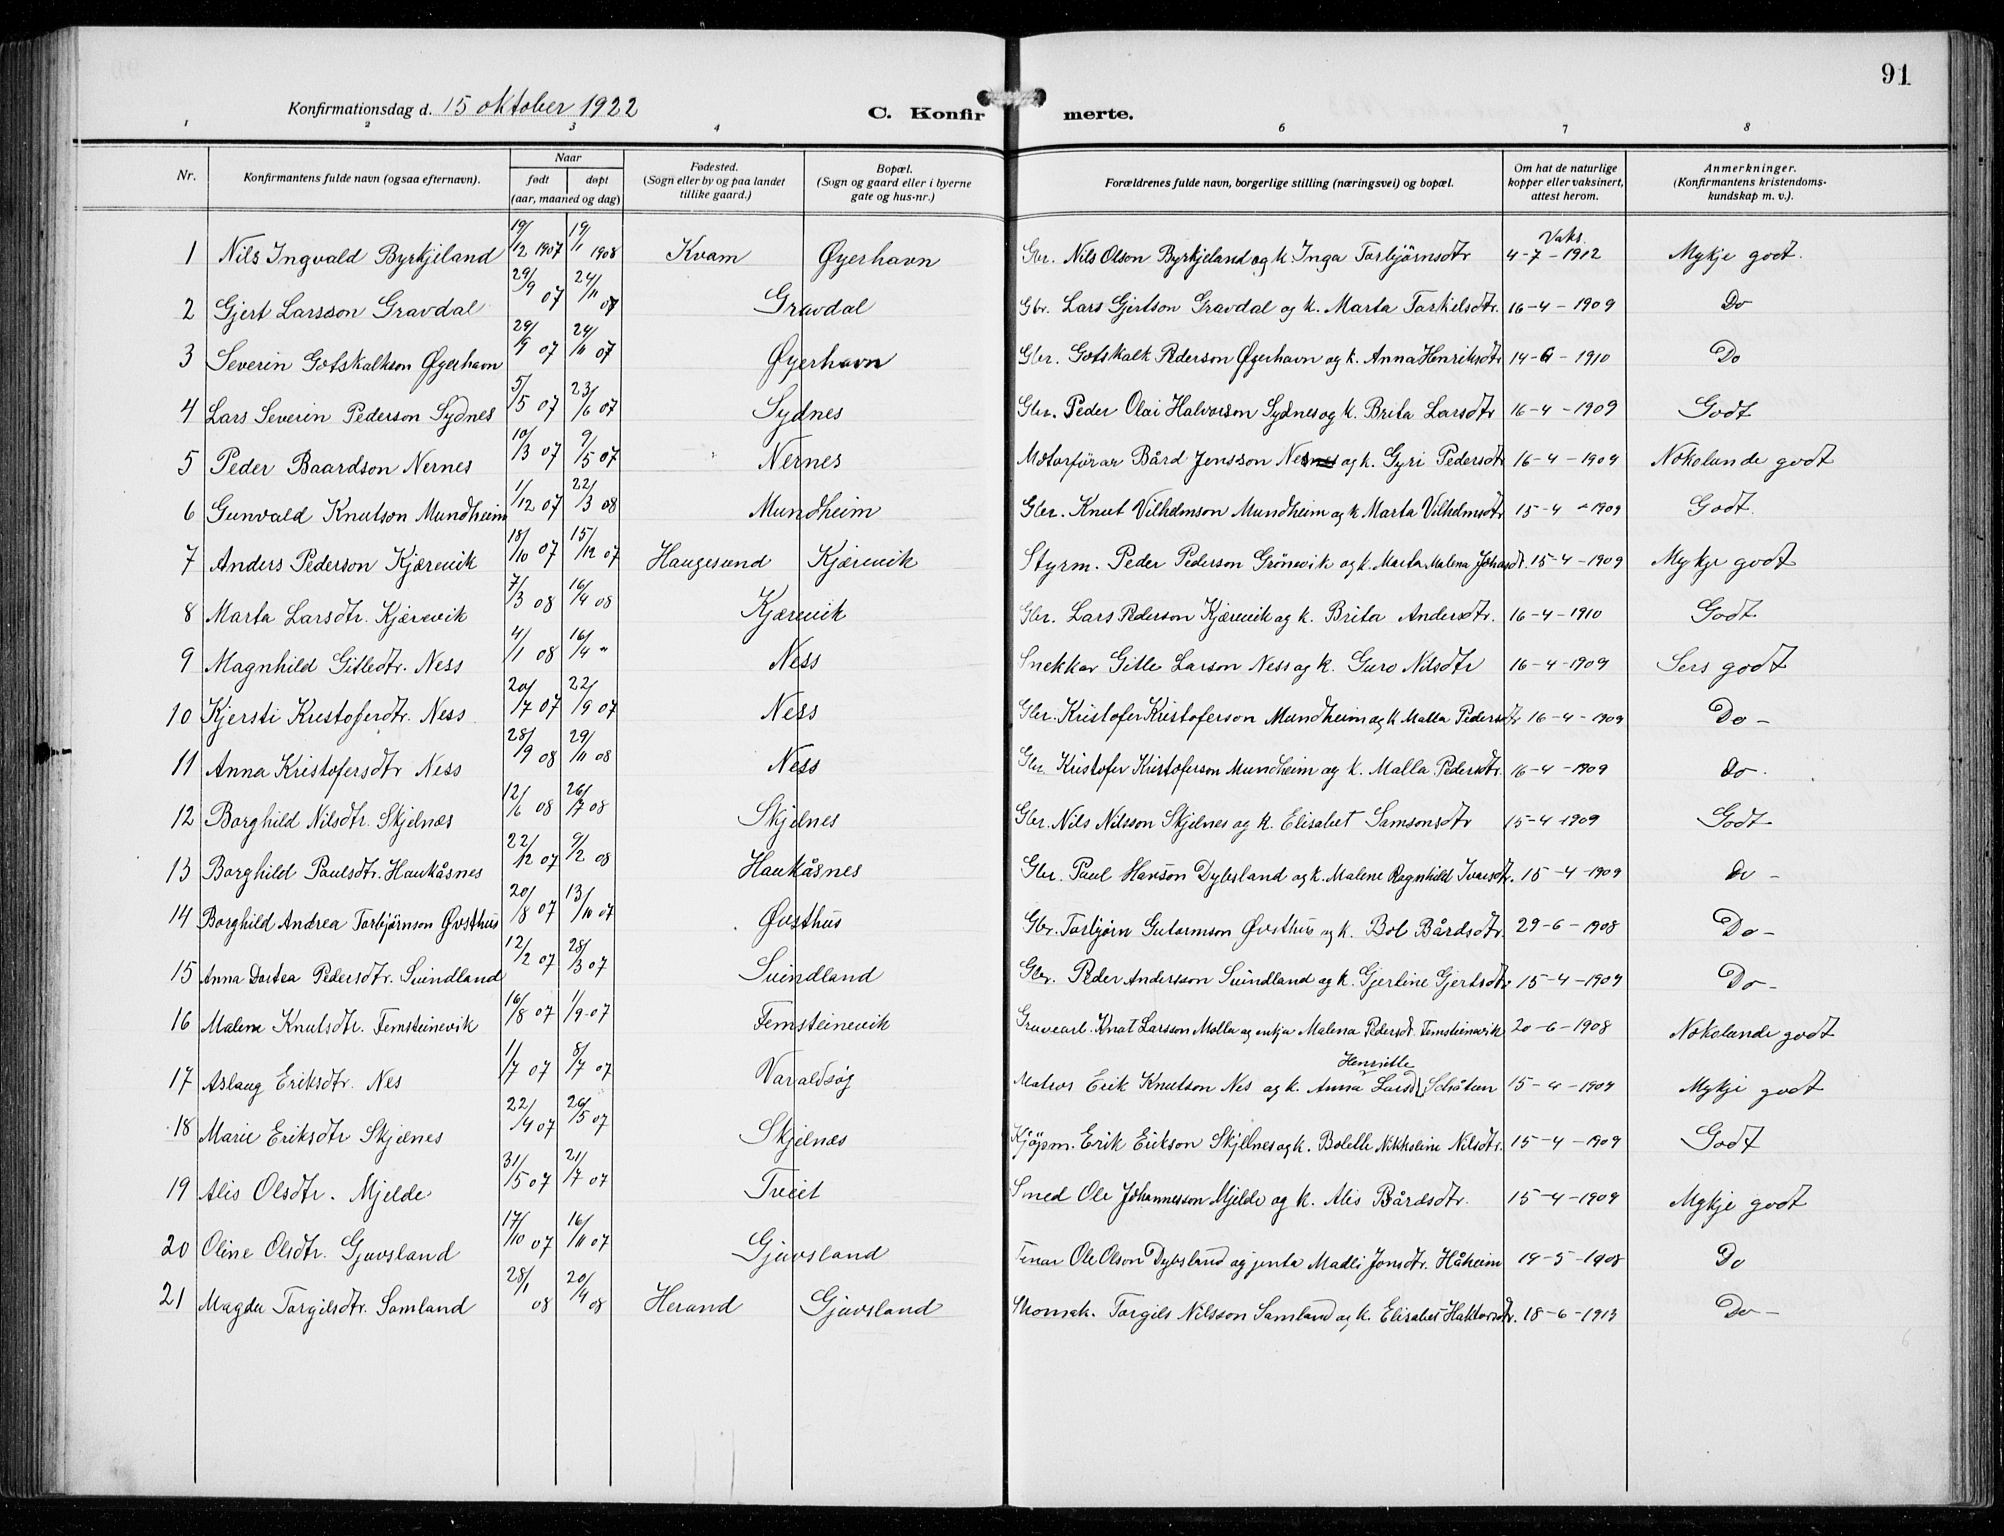 91
Konfirmationsdag d. 15 oktober 1922
C. Konfir merte.
1 2 3 4 6 7 8
Nr. Konfirmantens fulde navn (ogsaa efternavn). Naar født døpt (aar, maaned og dag) Fødested. (Sogn eller by og paa landet tillike gaard.) Bopæl. (Sogn og gaard eller i byerne gate og hus-nr.) Forældrenes fulde navn, borgerlige stilling (næringsvei) og bopæl. Om hat de naturlige kopper eller vaksinert, attest herom. Anmerkninger. (Konfirmantens kristendomskundskap m. v.).
1 Nils Ingvald Byrkjeland 19/12 1907 19/1 1908 Kvam Øyerhavn Gbr. Nils Olson Byrkjeland og k. Inga Torbjørnsdtr Vaks. 4-7-1912 Mykje godt.
2 Gjert Larsson Gravdal 29/9 07 24/11 07 Gravdal Gbr. Lars Gjertson Gravdal og k. Marta Torkelsdtr. 16-4-1909 Do
3 Severin Gotskalkson Øyerhavn 29/9 07 24/11 07 Øyerhavn Gbr. Gotskalk Pederson Øyerhavn og k. Anna Henriksdtr 14-6-1910 Do
4 Lars Severin Pederson Sydnes 5/5 07 23/6 07 Sydnes Gbr. Peder Olai Halvorson Sydnes og k. Brita Larsdtr 16-4-1909 Godt
5 Peder Baardson Nernes 10/3 07 9/5 07 Nernes Motorførar Bård Jensson Nes og k. Gyri Pedersdtr 16-4-1909 Nokolunde godt
6 Gunvald Knutson Mundheim 1/12 07 22/3 08 Mundheim Gbr. Knut Vilhelmson Mundheim og k Marta Vilhelmsdtr 15-4-1909 Godt.
7 Anders Pederson Kjærevik 18/10 07 15/12 07 Haugesund Kjærevik Styrm. Peder Pederson Grönevik og k. Marta Malena Johansdt. 15-4-1909 Mykje godt
8 Marta Larsdtr. Kjærevik 7/3 08 16/4 08 Kjærevik Gbr. Lars Pederson Kjærevik og k. Brita Andersdtr. 16-4-1910 Godt
9 Magnhild Gitledtr. Ness 4/1 08 16/4 " Ness Snekkar Gitle Larson Ness og k. Guro Nilsdtr 16-4-1909 Sers godt
10 Kjersti Kristoferdtr. Ness 20/7 07 22/9 07 Ness Gbr. Kristofer Kristoferson Mundheim og k Malla Pedersdtr 16-4-1909 Do -
11 Anna Kristofersdtr Ness 28/9 08 29/11 08 Ness Gbr Kristofer Kristoferson Mundheim og k. Malla Pedersdtr. 16-4-1909 do.
12 Borghild Nilsdtr. Skjelnæs 12/6 08 26/7 08 Skjelnes Gbr. Nils Nilsson Skjelnes og k. Elisabet Samsonsdtr 15-4-1909 Godt
13 Borghild Paulsdtr. Haukåsnes 22/12 07 9/2 08 Haukåsnes Gbr. Paul Hanson Dybsland og k. Malene Ragnhild Ivarsdtr. 15-4-1909 do -
14 Borghild Andrea Torbjørnson Øvsthus 20/8 07 13/10 07 Øvsthus Gbr. Torbjørn Gutormson Øvsthus og k. Bol Bårdsdtr. 29-6-1908 Do -
15 Anna Dortea Pedersdtr. Suindland 12/2 07 28/3 07 Suindland Gbr. Peder Andersson Suindland og k. Gjertine Gjertsdtr. 15-4-1909 Do -
16 Malene Knutsdtr. Femsteinevik 16/8 07 1/9-07 Femsteinevik Gruvearb. Knut Larsson Molla og enkja Malena Pedersdt. Femsteinevik 20-6-1908 Nokolunde godt
17 Aslaug Eriksdtr. Nes 1/7 07 8/7 07 Varaldsøy Matros Erik Knutson Nes og k. Anna Henriette Larsd Schåtun 15-4-1909 Mykje godt
18 Marie Eriksdtr Skjelnes 22/4 07 26/5 07 Skjelnæs Kjöpm. Erik Erikson Skjelnes og k. Bolette Nikoline Nilsdtr. 15-4-1909 Godt
19 Alis Olsdtr. Mjelde 31/5 07 21/7 07 Tveit Smed Ole Johannesson Mjelde og k. Alis Bårdsdtr. 15-4-1909 Mykje godt
20 Oline Olsdtr. Gjuvsland 17/10 07 16/11 07 Gjuvsland Tenar Ole Olson Dybsland og jenta Madli Jonsdtr. Håheim 19-5-1908 Do
21 Magda Torgilsdtr. Samland 28/1 08 20/4 08 Herand Gjuvsland Skomak. Torgils Nilsson Samland og k. Elisabet Haktorsdtr. 18-6-1913 Do -